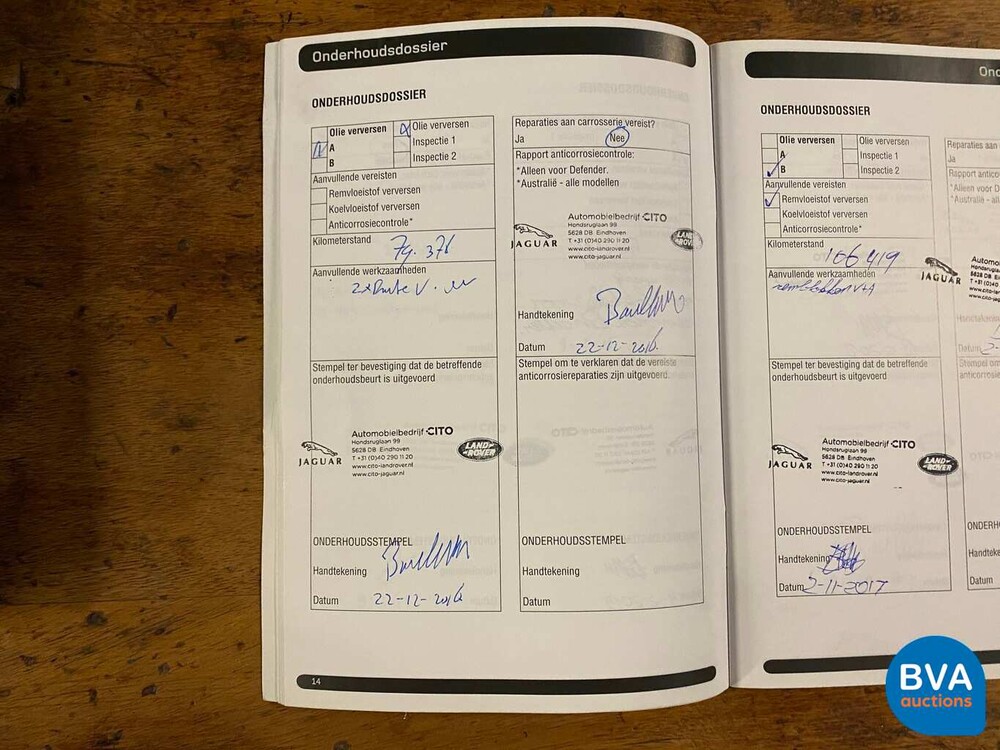 Onderhoudsdossier
ONDERHOUDSDOSSIER
Olie verversen
A
B
Olie verversen
Inspectie 1
Inspectie 2
Aanvullende vereisten
Remvloeistof verversen
Koelvloeistof verversen
Anticorrosiecontrole*
Kilometerstand
79.376
Aanvullende werkzaamheden
Stempel ter bevestiging dat de betreffende
onderhoudsbeurt is uitgevoerd
Automobielbedrijf CITO
Hondsruglaan 99
5628 DB Eindhoven
T +31 (0)40 290 11 20
www.cito-landrover.nl
www.cito-jaguar.nl
JAGUAR
LAND-
ROVER
ONDERHOUDSSTEMPEL
Handtekening
Datum 22-12-2016
Reparaties aan carrosserie vereist?
Ja Nee
Rapport anticorrosiecontrole:
*Alleen voor Defender.
*Australië - alle modellen
Automobielbedrijf CITO
Hondsruglaan 99
5628 DB Eindhoven
T +31 (0)40 290 11 20
www.cito-landrover.nl
www.cito-jaguar.nl
JAGUAR
LAND
ROVER
Handtekening
Datum 22-12-2016
Stempel om te verklaren dat de vereiste
anticorrosiereparaties zijn uitgevoerd.
ONDERHOUDSSTEMPEL
Handtekening
Datum
14
On
ONDERHOUDSDOSSIER
Olie verversen
A
B
Olie verversen
Inspectie 1
Inspectie 2
Aanvullende vereisten
Remvloeistof verversen
Koelvloeistof verversen
Anticorrosiecontrole*
Kilometerstand
106419
Aanvullende werkzaamheden
remblokken V+A
Stempel ter bevestiging dat de betreffende
onderhoudsbeurt is uitgevoerd
Automobielbedrijf CITO
Hondsruglaan 99
5628 DB Eindhoven
T +31 (0)40 290 11 20
www.cito-landrover.nl
www.cito-jaguar.nl
JAGUAR
LAND-
ROVER
ONDERHOUDSSTEMPEL
Handtekening
Datum 2-11-2017
Reparaties aan
Ja
Rapport antico
*Alleen voor De
*Australië - all
Automo
Hondsrug
5628 DB
T +31 (0)4
www.cito-
www.cito-
JAGUAR
Handtekening
Datum 2-
Stempel om
anticorrosie
ONDERH
Handteke
Datum
BVA
auctions